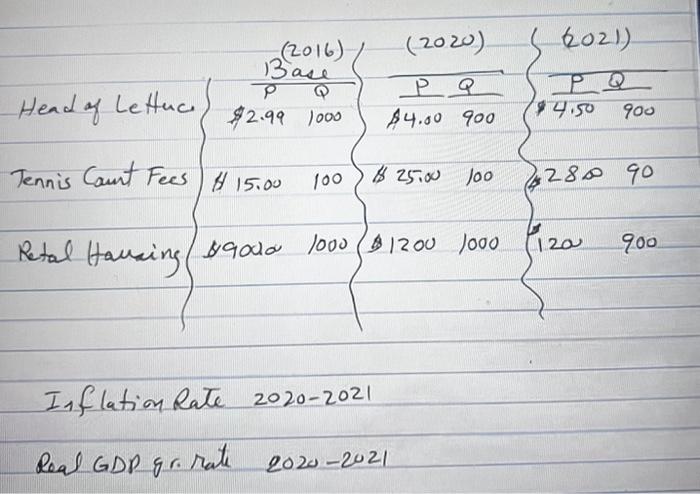 (2016) (2020) (2021)
Base
P Q P Q P Q
Head of Lettuc $2.99 1000 $4.00 900 $4.50 900
Tennis Court Fees $15.00 100 $25.00 100 $28 90
Retal Housing 1000 $1200 1000 900
Inflation Rate 2020-2021
Real GDP gr. rate 2020-2021